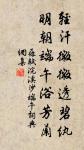 輕汗微微透碧紈
明朝端午浴芳蘭
蘇軾浣溪沙端午詞典
網集